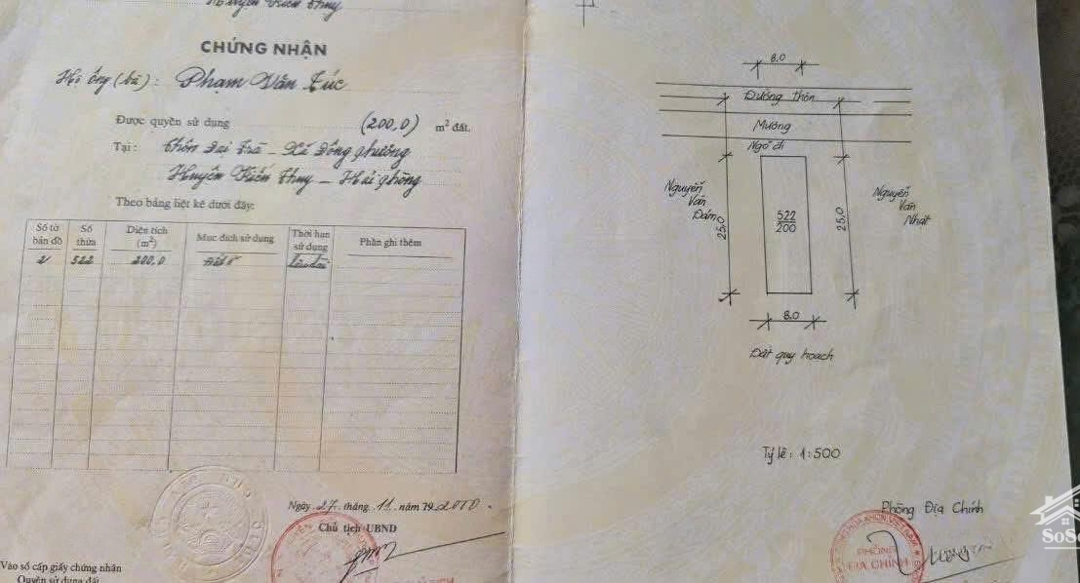 Huyện Kiến Thụy
CHỨNG NHẬN
Hộ ông (bà): Phạm Văn Túc
Được quyền sử dụng (200,0) m² đất.
Tại: Thôn Đại Trà - Xã Đông Phương
Huyện Kiến Thụy - Hải Phòng
Theo bảng liệt kê dưới đây:
Số tờ bản đồ Số thửa Diện tích (m²) Mục đích sử dụng Thời hạn sử dụng Phần ghi thêm
2 522 200,0 Đất ở lâu dài
Ngày 27 tháng 11 năm 192000
Chủ tịch UBND
Vào sổ cấp giấy chứng nhận
Quyền sử dụng đất
8.0
Đường thôn
Mương
Ngõ đi
Nguyễn
Văn
Đám
25,0
522
200
25,0
Nguyễn
Văn
Nhạt
8.0
Đất quy hoạch
Tỷ lệ: 1:500
Phòng Địa Chính
PHÒNG
ĐỊA CHÍNH
SoSo